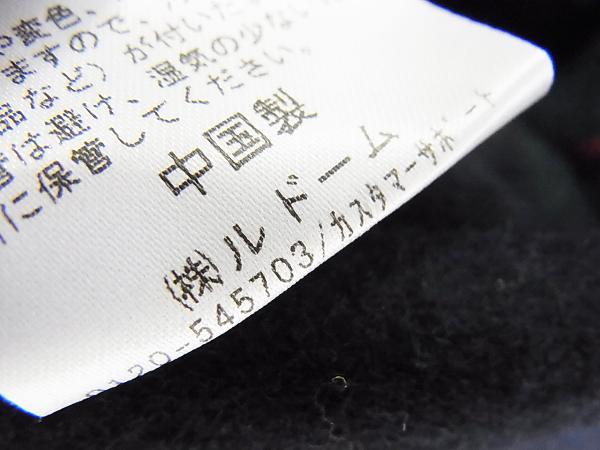 変色、
ますので、
品など）が付いた
は避け、湿気の少ない
に保管してください。
中国製
㈱ルドーム
0120-545703/カスタマーサポート